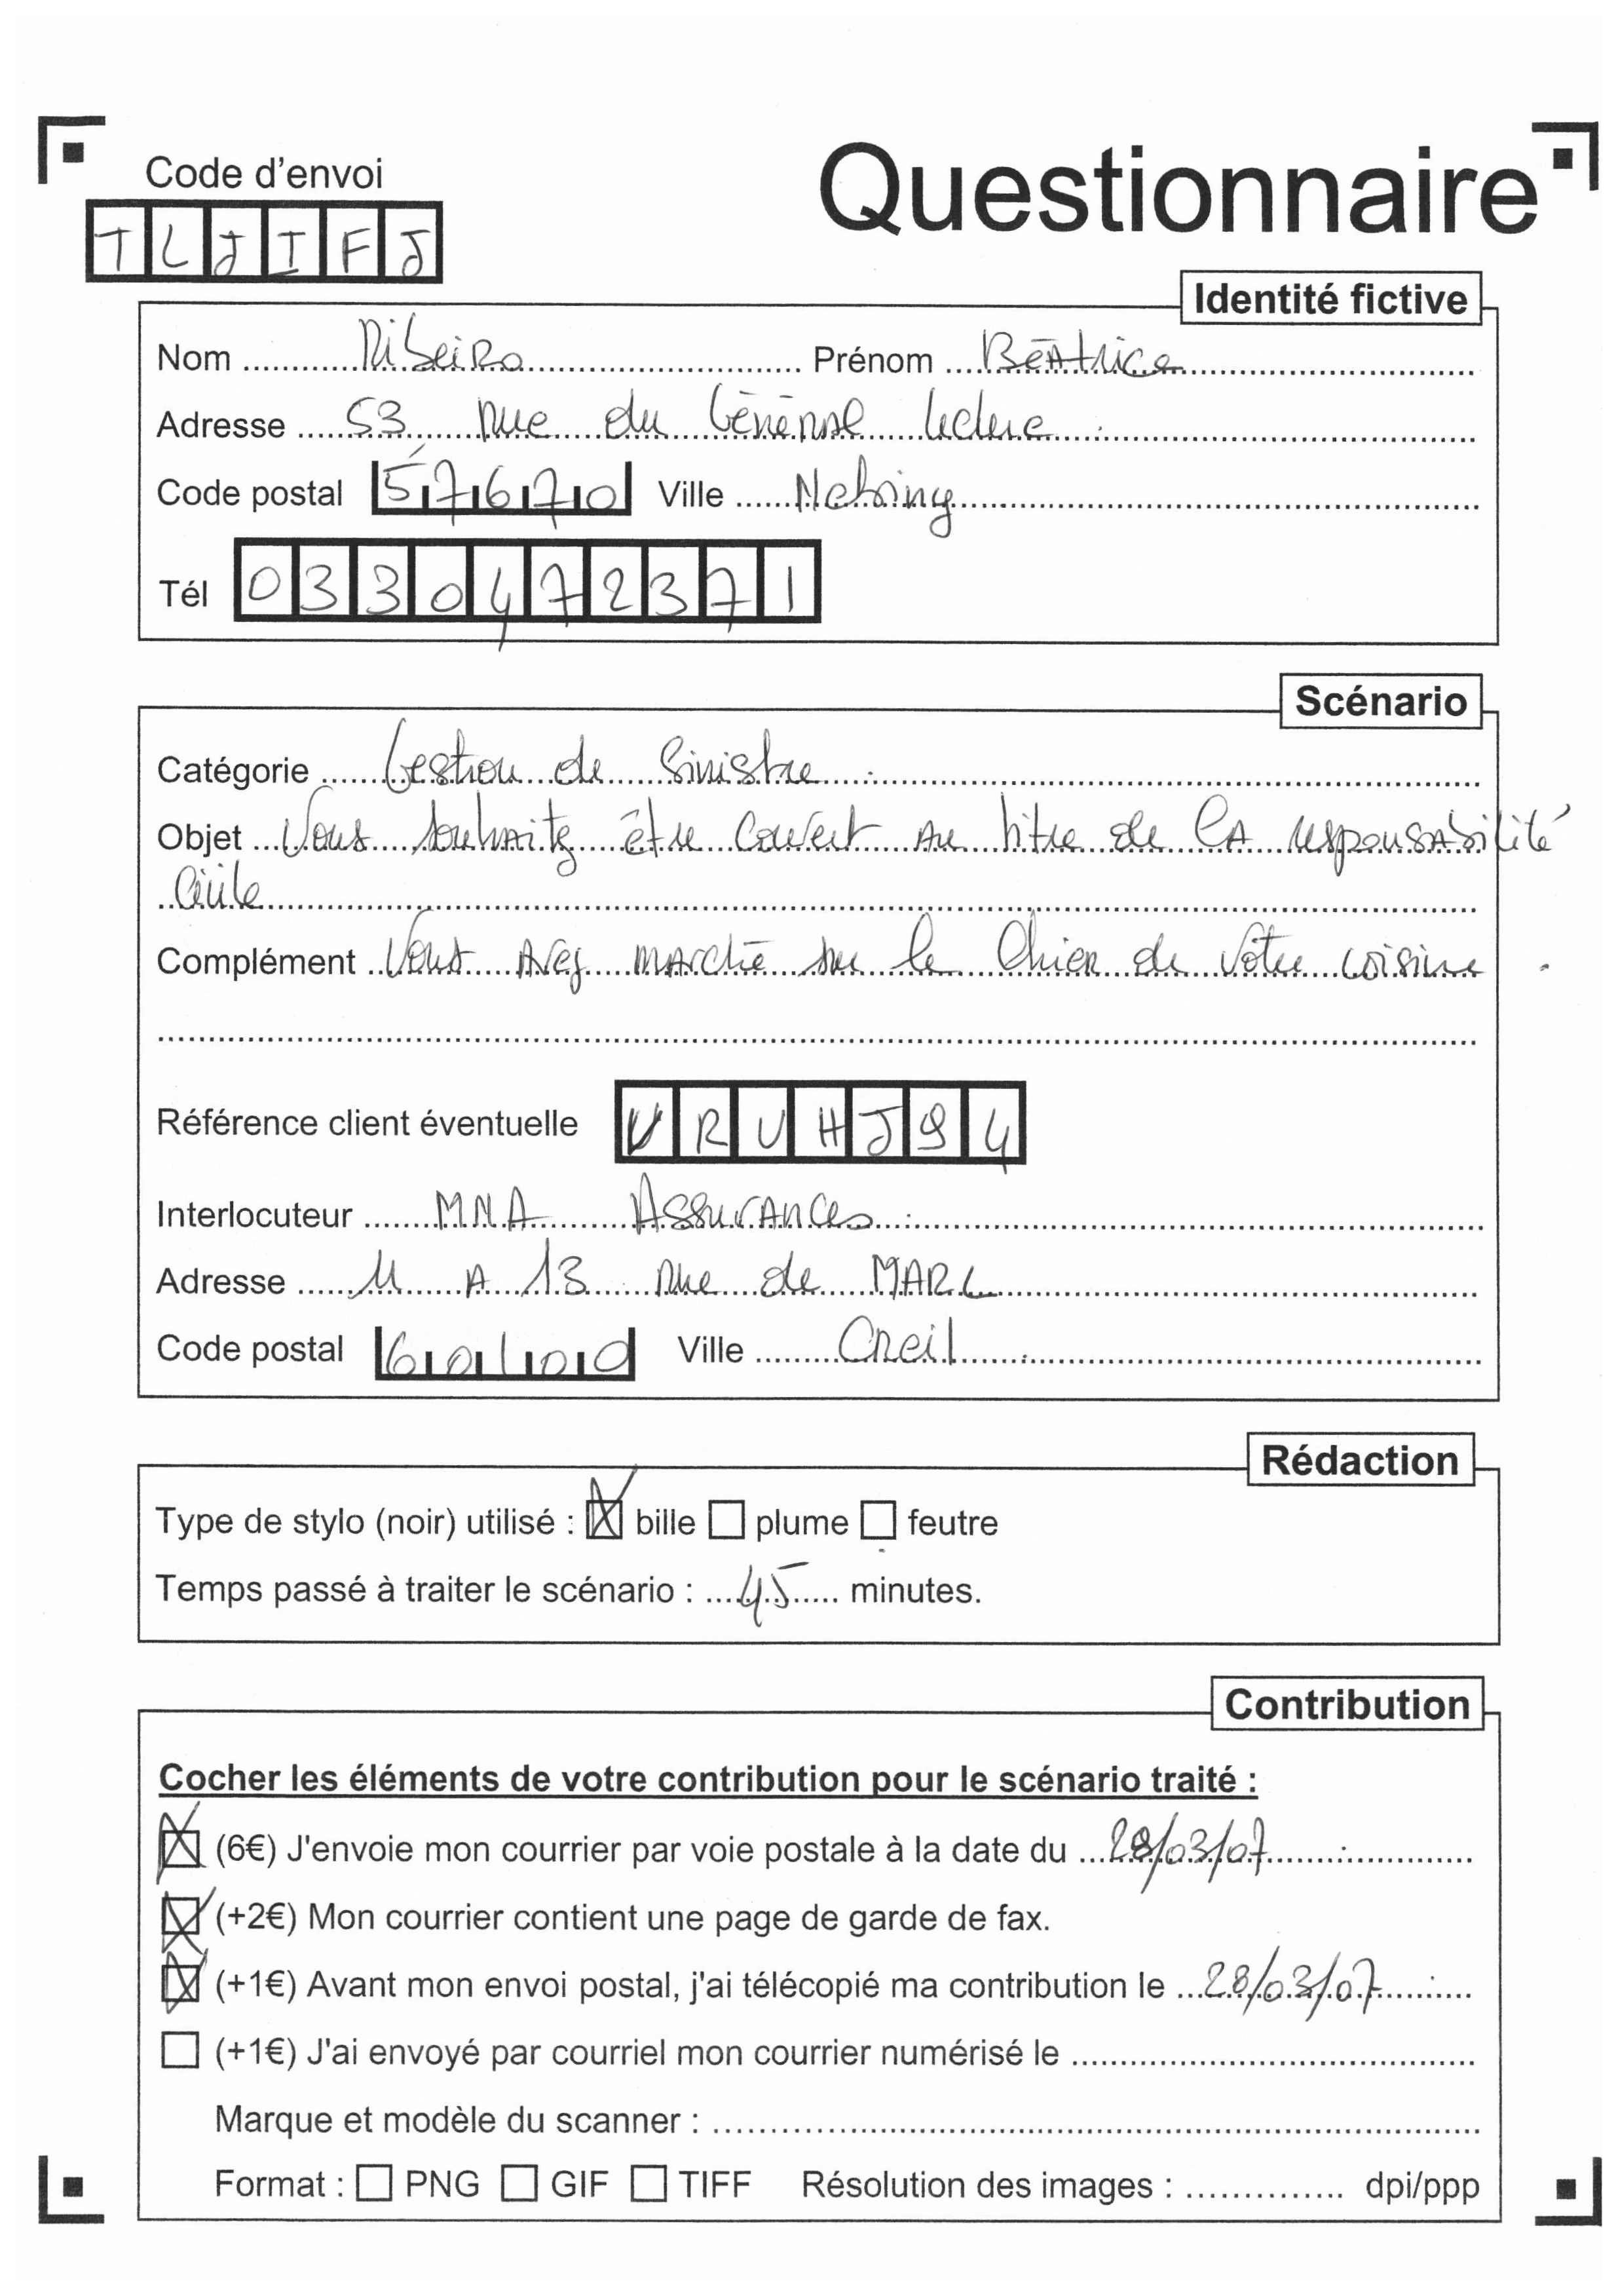 Code d'envoi
Questionnaire
TLJIFJ
Identité fictive
Nom Ribeiro Prénom Béatrice
Adresse 53 rue du Général Leclerc
Code postal 57670 Ville Nebing
Tél 0330472371
Scénario
Catégorie Gestion de Sinistre
Objet Vous souhaitez être couvert au titre de la responsabilité
Civile
Complément Vous avez marché sur le Chien de votre voisine
Référence client éventuelle VRUHJ94
Interlocuteur MNA Assurances
Adresse 11 A 13 rue de MARL
Code postal 60100 Ville Creil
Rédaction
Type de stylo (noir) utilisé : bille plume feutre
Temps passé à traiter le scénario : 45 minutes.
Contribution
Cocher les éléments de votre contribution pour le scénario traité :
(6€) J'envoie mon courrier par voie postale à la date du 28/03/07
(+2€) Mon courrier contient une page de garde de fax.
(+1€) Avant mon envoi postal, j'ai télécopié ma contribution le 28/03/07
(+1€) J'ai envoyé par courriel mon courrier numérisé le
Marque et modèle du scanner :
Format : PNG GIF TIFF Résolution des images : dpi/ppp